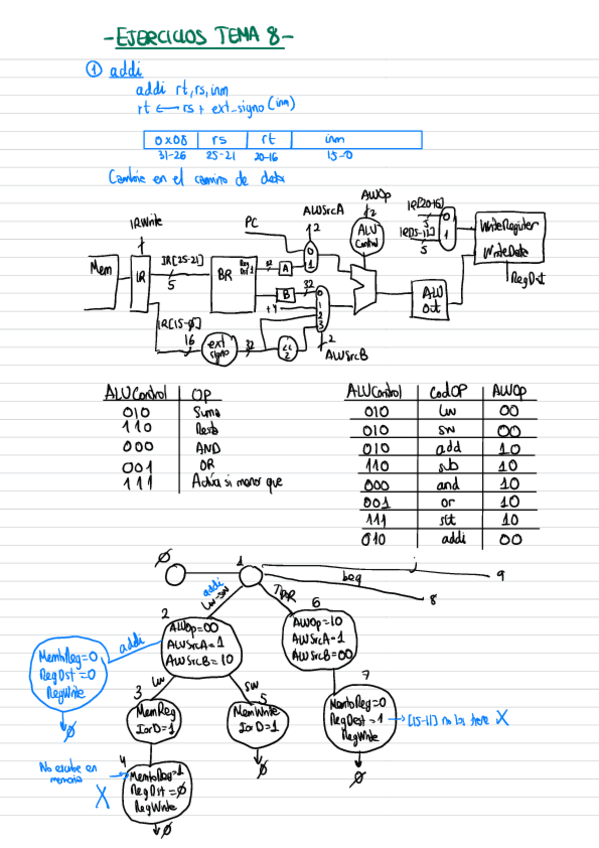 -EJERCICIOS TEMA 8-
① addi
addi rt,rs,inm
rt ← rs + ext_signo(inm)
0x08 rs rt inm
31-26 25-21 20-16 15-0
Cambie en el camino de data
ALUOp
IR[20-16]
ALUSrcA
2
2
5
0
WriteRegister
IRWrite
PC
ALU
Control
IR[15-11]
1
5
WriteData
RegDst
Mem
IR
IR[25-21]
5
BR
32
A
0
1
B
32
+4
0
1
2
3
ALU
Out
IR[15-0]
16
ext
signo
32
<<
2
2
ALUSrcB
ALUControl OP
010 Suma
110 Resta
000 AND
001 OR
111 Activa si menor que
ALUControl CodOP ALUOp
010 lw 00
010 sw 00
010 add 10
110 sub 10
000 and 10
001 or 10
111 slt 10
010 addi 00
0
1
j
9
beq
8
addi
lw-sw
TIPOR
2
ALUOp=00
ALUSrcA=1
ALUSrcB=10
6
ALUOp=10
ALUSrcA=1
ALUSrcB=00
addi
MemtoReg=0
RegDst=0
RegWrite
0
lw
sw
3
MemReg
IorD=1
5
MemWrite
IorD=1
0
7
MemtoReg=0
RegDest=1 → [15-11] no los tiene X
RegWrite
0
No escribe en
memoria
X
4
MemtoReg=1
RegDst=0
RegWrite
0